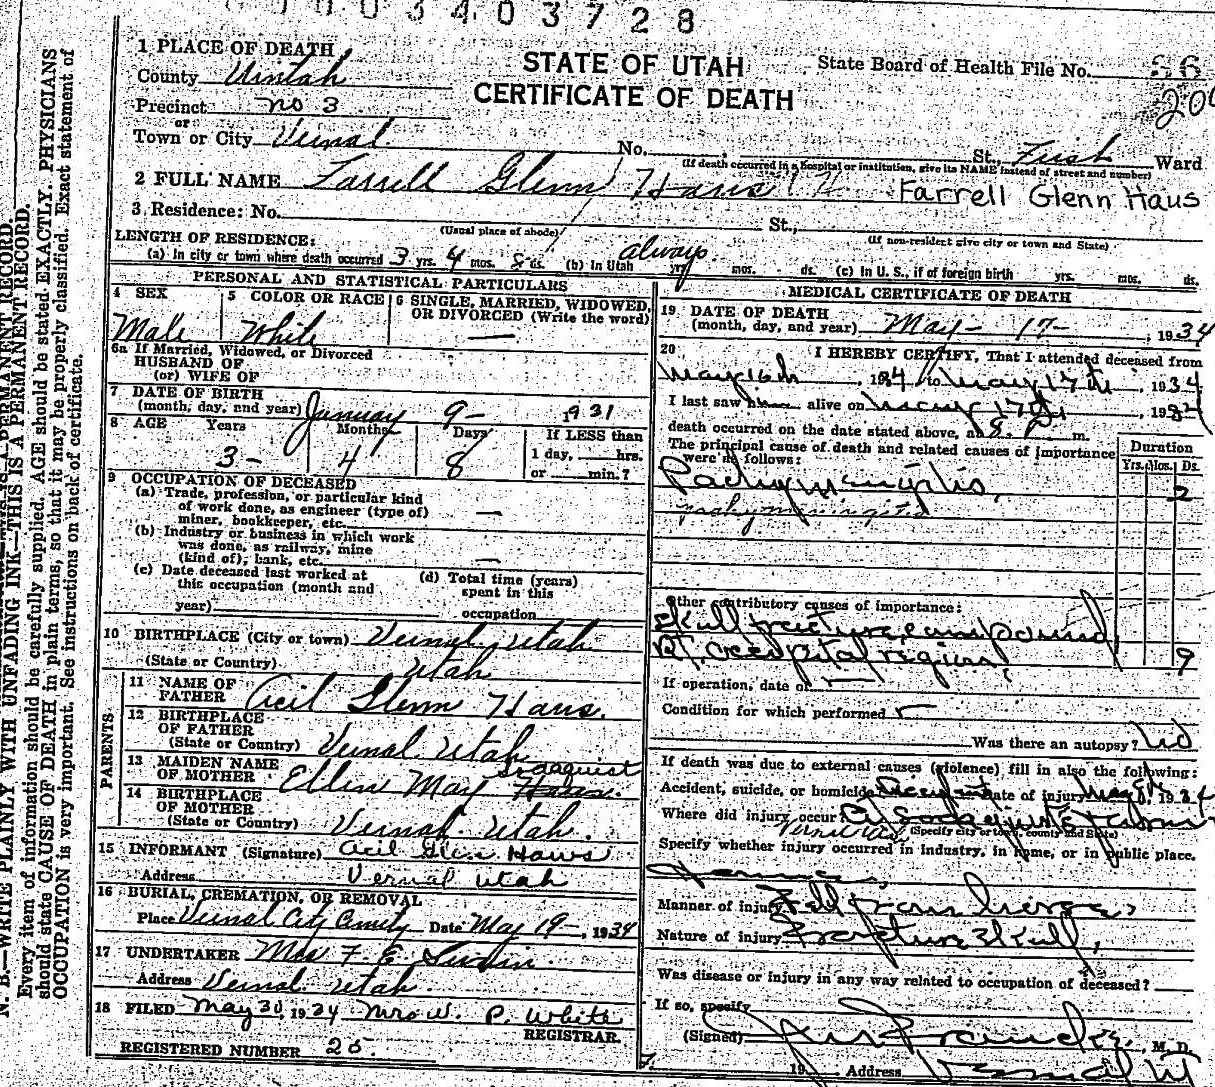 003403728
STATE OF UTAH
CERTIFICATE OF DEATH
State Board of Health File No. 56
200
1 PLACE OF DEATH
County Uintah
Precinct no 3
or
Town or City Vernal No. St., First Ward
(If death occurred in a hospital or institution, give its NAME instead of street and number)
2 FULL NAME Farrell Glenn Haws Farrell Glenn Haus
3 Residence: No. St.,
(Usual place of abode) (If non-resident give city or town and State)
LENGTH OF RESIDENCE:
(a) In city or town where death occurred 3 yrs. 4 mos. 8 ds. (b) In Utah always yrs. mos. ds. (c) In U. S., if of foreign birth yrs. mos. ds.
PERSONAL AND STATISTICAL PARTICULARS
4 SEX 5 COLOR OR RACE 6 SINGLE, MARRIED, WIDOWED, OR DIVORCED (Write the word)
Male White —
6a If Married, Widowed, or Divorced
HUSBAND OF
(or) WIFE OF
7 DATE OF BIRTH
(month, day, and year) January 9- 1931
8 AGE Years Months Days If LESS than
3- 4 8 1 day, hrs.
or min.?
9 OCCUPATION OF DECEASED
(a) Trade, profession, or particular kind
of work done, as engineer (type of)
miner, bookkeeper, etc. —
(b) Industry or business in which work
was done, as railway, mine
(kind of), bank, etc. —
(c) Date deceased last worked at
this occupation (month and
year)
(d) Total time (years)
spent in this
occupation
10 BIRTHPLACE (City or town) Vernal, Utah
(State or Country) Utah
PARENTS
11 NAME OF
FATHER Acil Glenn Haws.
12 BIRTHPLACE
OF FATHER
(State or Country) Vernal Utah
13 MAIDEN NAME
OF MOTHER Ellen May Haws.
14 BIRTHPLACE
OF MOTHER
(State or Country) Vernal Utah.
15 INFORMANT (Signature) Acil Glen Haws
Address Vernal Utah
16 BURIAL, CREMATION, OR REMOVAL
Place Vernal City Date May 19-, 1934
17 UNDERTAKER Mrs F. E.
Address Vernal Utah.
18 FILED May 30, 1934 Mrs W. P. White
REGISTRAR.
REGISTERED NUMBER 25.
MEDICAL CERTIFICATE OF DEATH
19 DATE OF DEATH
(month, day, and year) May- 17-, 1934
20 I HEREBY CERTIFY, That I attended deceased from
May 16th, 1934 to May 17th, 1934
I last saw him alive on May 17th, 1934
death occurred on the date stated above, at 8. P m.
The principal cause of death and related causes of importance
were as follows:
Duration
Yrs. Mos. Ds.
Pachymeningitis, 2
pachymeningitis
Other contributory causes of importance:
Skull fracture, compound,
Rt. occipital region, 9
If operation, date of —
Condition for which performed
Was there an autopsy? No
If death was due to external causes (violence) fill in also the following:
Accident, suicide, or homicide Accident Date of injury May 8th, 1934
Where did injury occur
Vernal Utah (Specify city or town, county and State)
Specify whether injury occurred in industry, in home, or in public place.
Manner of injury Fell from horse,
Nature of injury Fracture Skull,
Was disease or injury in any way related to occupation of deceased?
If so, specify
(Signed) M. D.
19 Address Vernal Ut
N. B.—WRITE PLAINLY WITH UNFADING INK—THIS IS A PERMANENT RECORD.
Every item of information should be carefully supplied. AGE should be stated EXACTLY. PHYSICIANS
should state CAUSE OF DEATH in plain terms, so that it may be properly classified. Exact statement of
OCCUPATION is very important. See instructions on back of certificate.